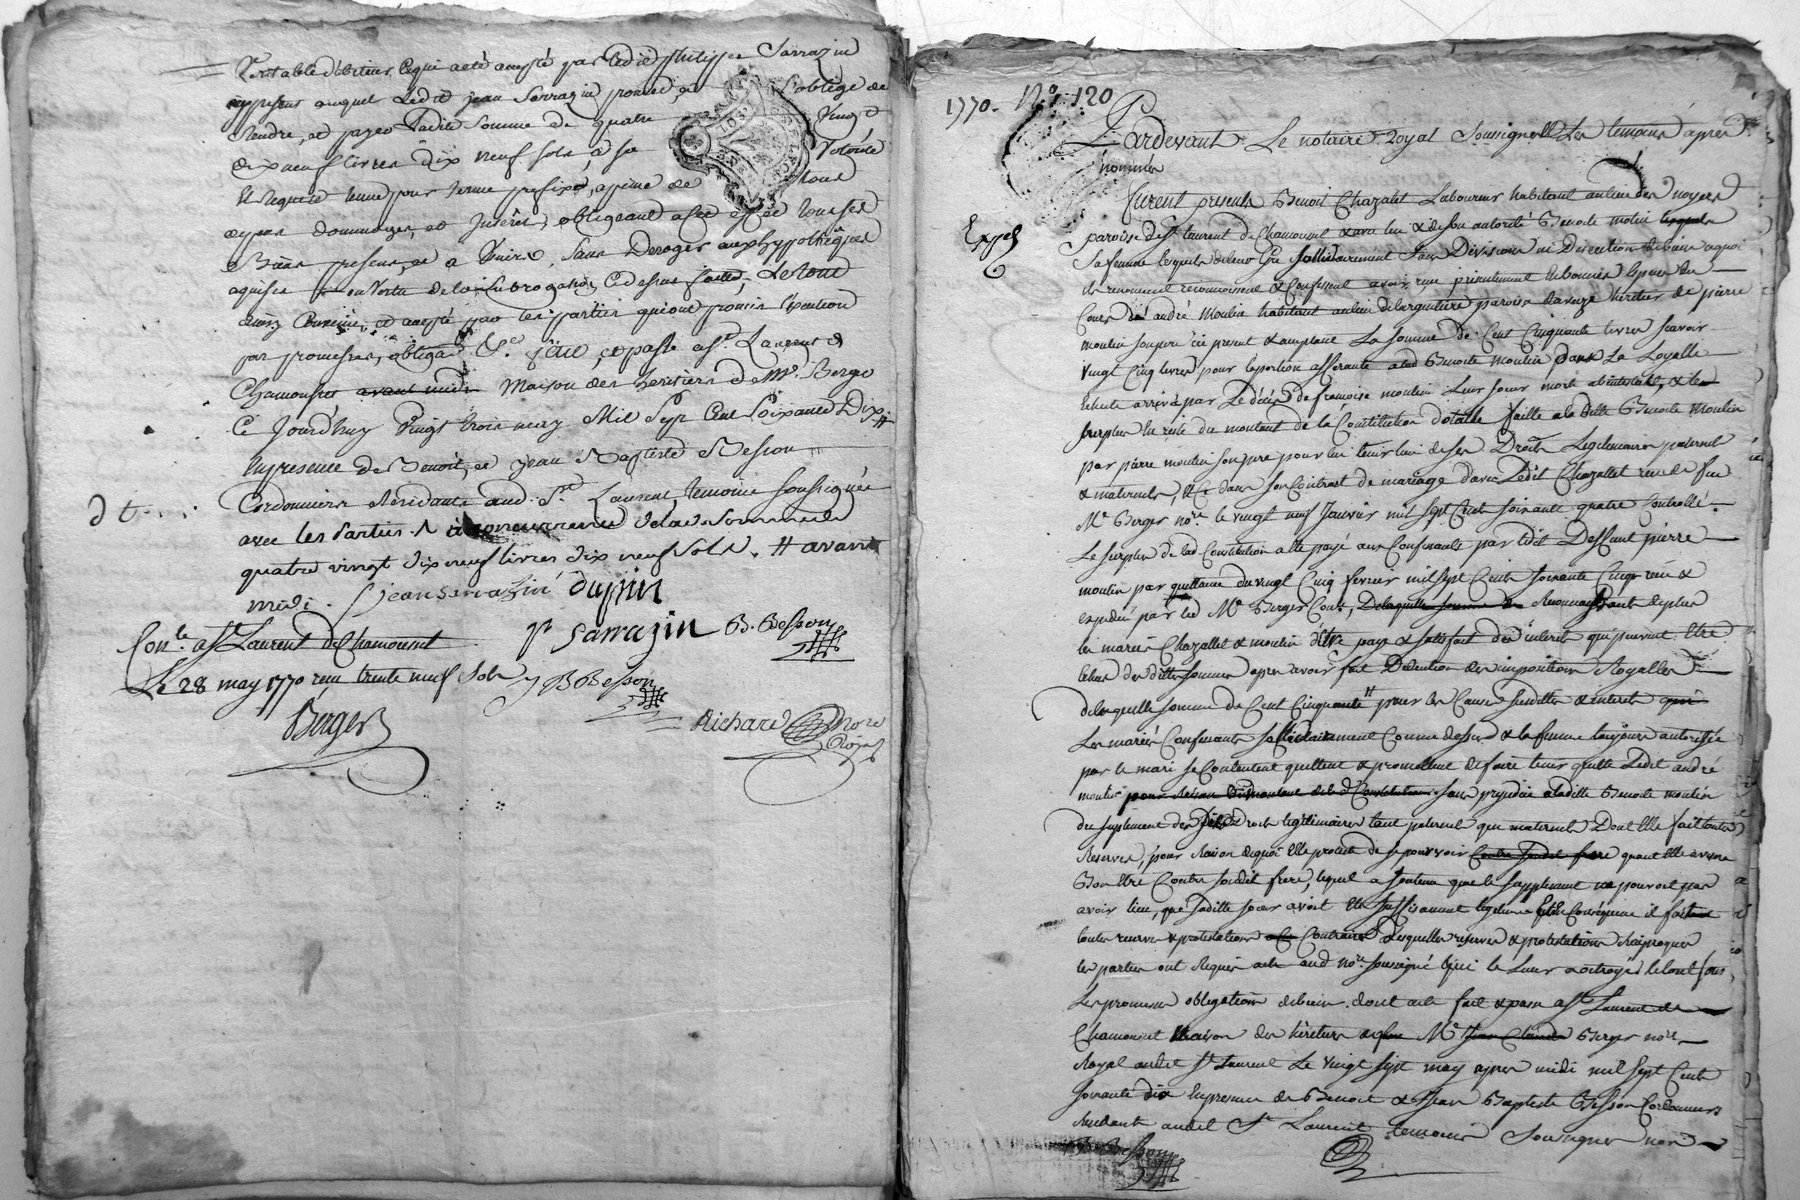 Veritable debiteur, ce qui a eté accepté par ledit philippe Sarrazin
auquel Ledit jean Sarrazin promet, et s'oblige de
Rendre, et payer Ladite Somme de quatre Vingt
dix neuf livres dix neuf sols, a sa Volonté
et Requete tenue pour terme prefixe, a peine de tous
depens dommages, et Interêts, obligeant a cet effet tous ses
Biens presens, et a Venir, Sans Deroger aux hypothèques
aquises en Vertu de la subrogation Cy dessus faitte, Le tout
ainsy Convenu, et accepté par les parties qui ont promis l'execution
par promesses, obliga. &c. fait, et passé a St. Laurent de
Chamousset avant midi Maison des heritiers de Me. Berger
Ce Jourd'huy Vingt trois may Mil Sept Cent Soixante Dix #
En presence de Benoit, et Jean Baptiste Besson
Cordonniers Residants aud. St. Laurent, temoins soussignés
avec les Parties. à concurrence de lad. Somme de
quatre vingt dix neuf livres dix neuf sols. # avant
midi. Jean Sarrazin dupuin
P Sarrazin B. Besson
Con.lé a St Laurent de Chamousset
Le 28 may 1770 reçu trente neuf sols J B Besson
Berger
Richard Nore
Royal
1770. N.º 120
Pardevant Le notaire Royal Soussigné & Les temoins apres
nommés
Exped
furent presents Benoit Chazalet Laboureur habitant au lieu des noyers
paroisse de St laurent de Chamousset & de lui & de son autorité Benoite molin
Sa femme lesquels de leur Gré sollidairement sans Division ni Discution de biens a quoi
ils renoncent reconnoissent & Confessent avoir reçu presentement
Cours de andré Moulin habitant au lieu de largentiere paroisse davaize heritier de pierre
moulin son pere ici present & acceptant La somme de Cent Cinquante livres scavoir
vingt Cinq livres pour la portion afferante a lad Benoite moulin dans La
echute arrivée par Le décès de francoise moulin Leur soeur morte abintestat, & le
surplus En reste du montant de la Constitution dotalle faitte a la ditte Benoite Moulin
par pierre moulin son pere pour lui tenir lieu de ses Droits Legitimaires paternels
& maternels, & Ce dans son Contrat de mariage d'avec Ledit Chazallet reçu de feu
Me Berger nore. le vingt neuf Janvier mil sept Cent soixante quatre Controllé.
Le surplus de lad Constitution a eté payé aux Confessants par ledit Deffunt pierre
moulin par quittance du vingt Cinq fevrier mil sept Cent soixante Cinq reçu &
expedié par led Me Berger Con.lé, Delaquelle somme de Reconnoissants deplus
les mariés Chazallet & moulin d'être payé & satisfait des interets qui peuvent Etre
Echus des dittes sommes apres avoir fait Deduction des impositions Royalles
delaquelle somme de Cent Cinquante # pour les Causes susdittes & interets
Les mariés Confessants sollidairement Comme dessus & la femme toujours autorisée
par le mari se Contentent quittent & promettent de faire tenir quitte Ledit andré
moulin pour Raison du montant de lad Constitution sans prejudice a laditte Benoite moulin
du suplement des dits Droits legitimaires tant paternels que maternels Dont Elle fait toutes
Reserves, pour Raison dequoi Elle proteste de se pourvoir Contre sondit frere quant Elle avisera
Bon Etre Contre sondit frere, lequel a soutenu que le supplement ne pouvoit pas
avoir lieu, que saditte soeur avoit Eté suffisament legitimée & En Conséquence il fait
toutes reserves & protestations Contraires Desquelles reserves & protestations Reciproques
les parties ont Requis acte aud nore. soussigné qui le Leur a octroyé le tout sous
Les promesses obligations de biens. dont acte fait & passé a St Laurent de
Chamousset Maison des héritiers de feu Me Jean Claude Berger nore.
Royal audit St Laurent Le vingt sept may apres midi mil sept Cent
soixante dix En presence de Benoit & Jean Baptiste Besson Cordonniers
Residents audit St Laurent temoins Soussignés non
B Besson